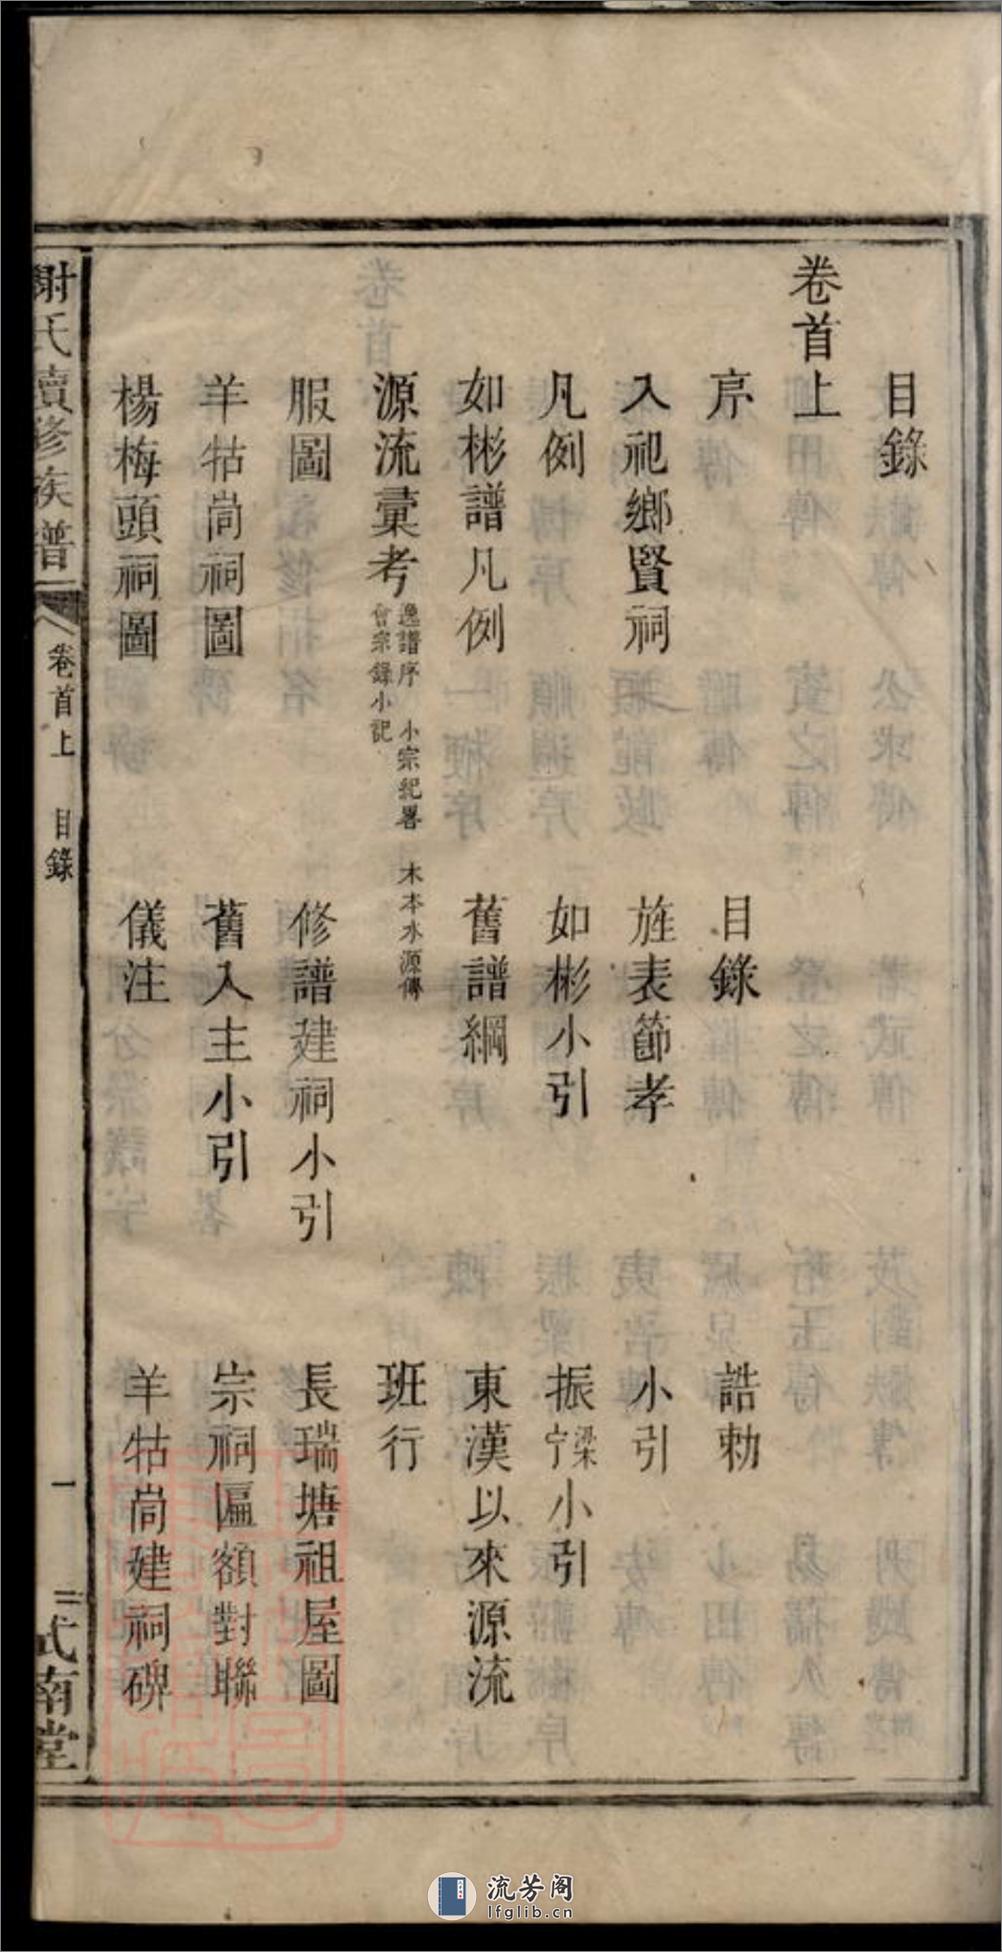 目錄
卷首上
序　目錄　誥勅
入祀鄉賢祠　旌表節孝　小引
凡例　如彬小引　振宁樑小引
如彬譜凡例　舊譜綱　東漢以來源流
源流彙考　逸譜序　小宗紀畧　木本水源傳　會宗錄小記　班行
服圖　修譜建祠小引　長瑞塘祖屋圖
羊牯峝祠圖　舊入主小引　宗祠匾額對聯
楊梅頭祠圖　儀注　羊牯峝建祠碑
謝氏續修族譜　卷首上　目錄　一　式南堂
流芳阁
lfglib.cn